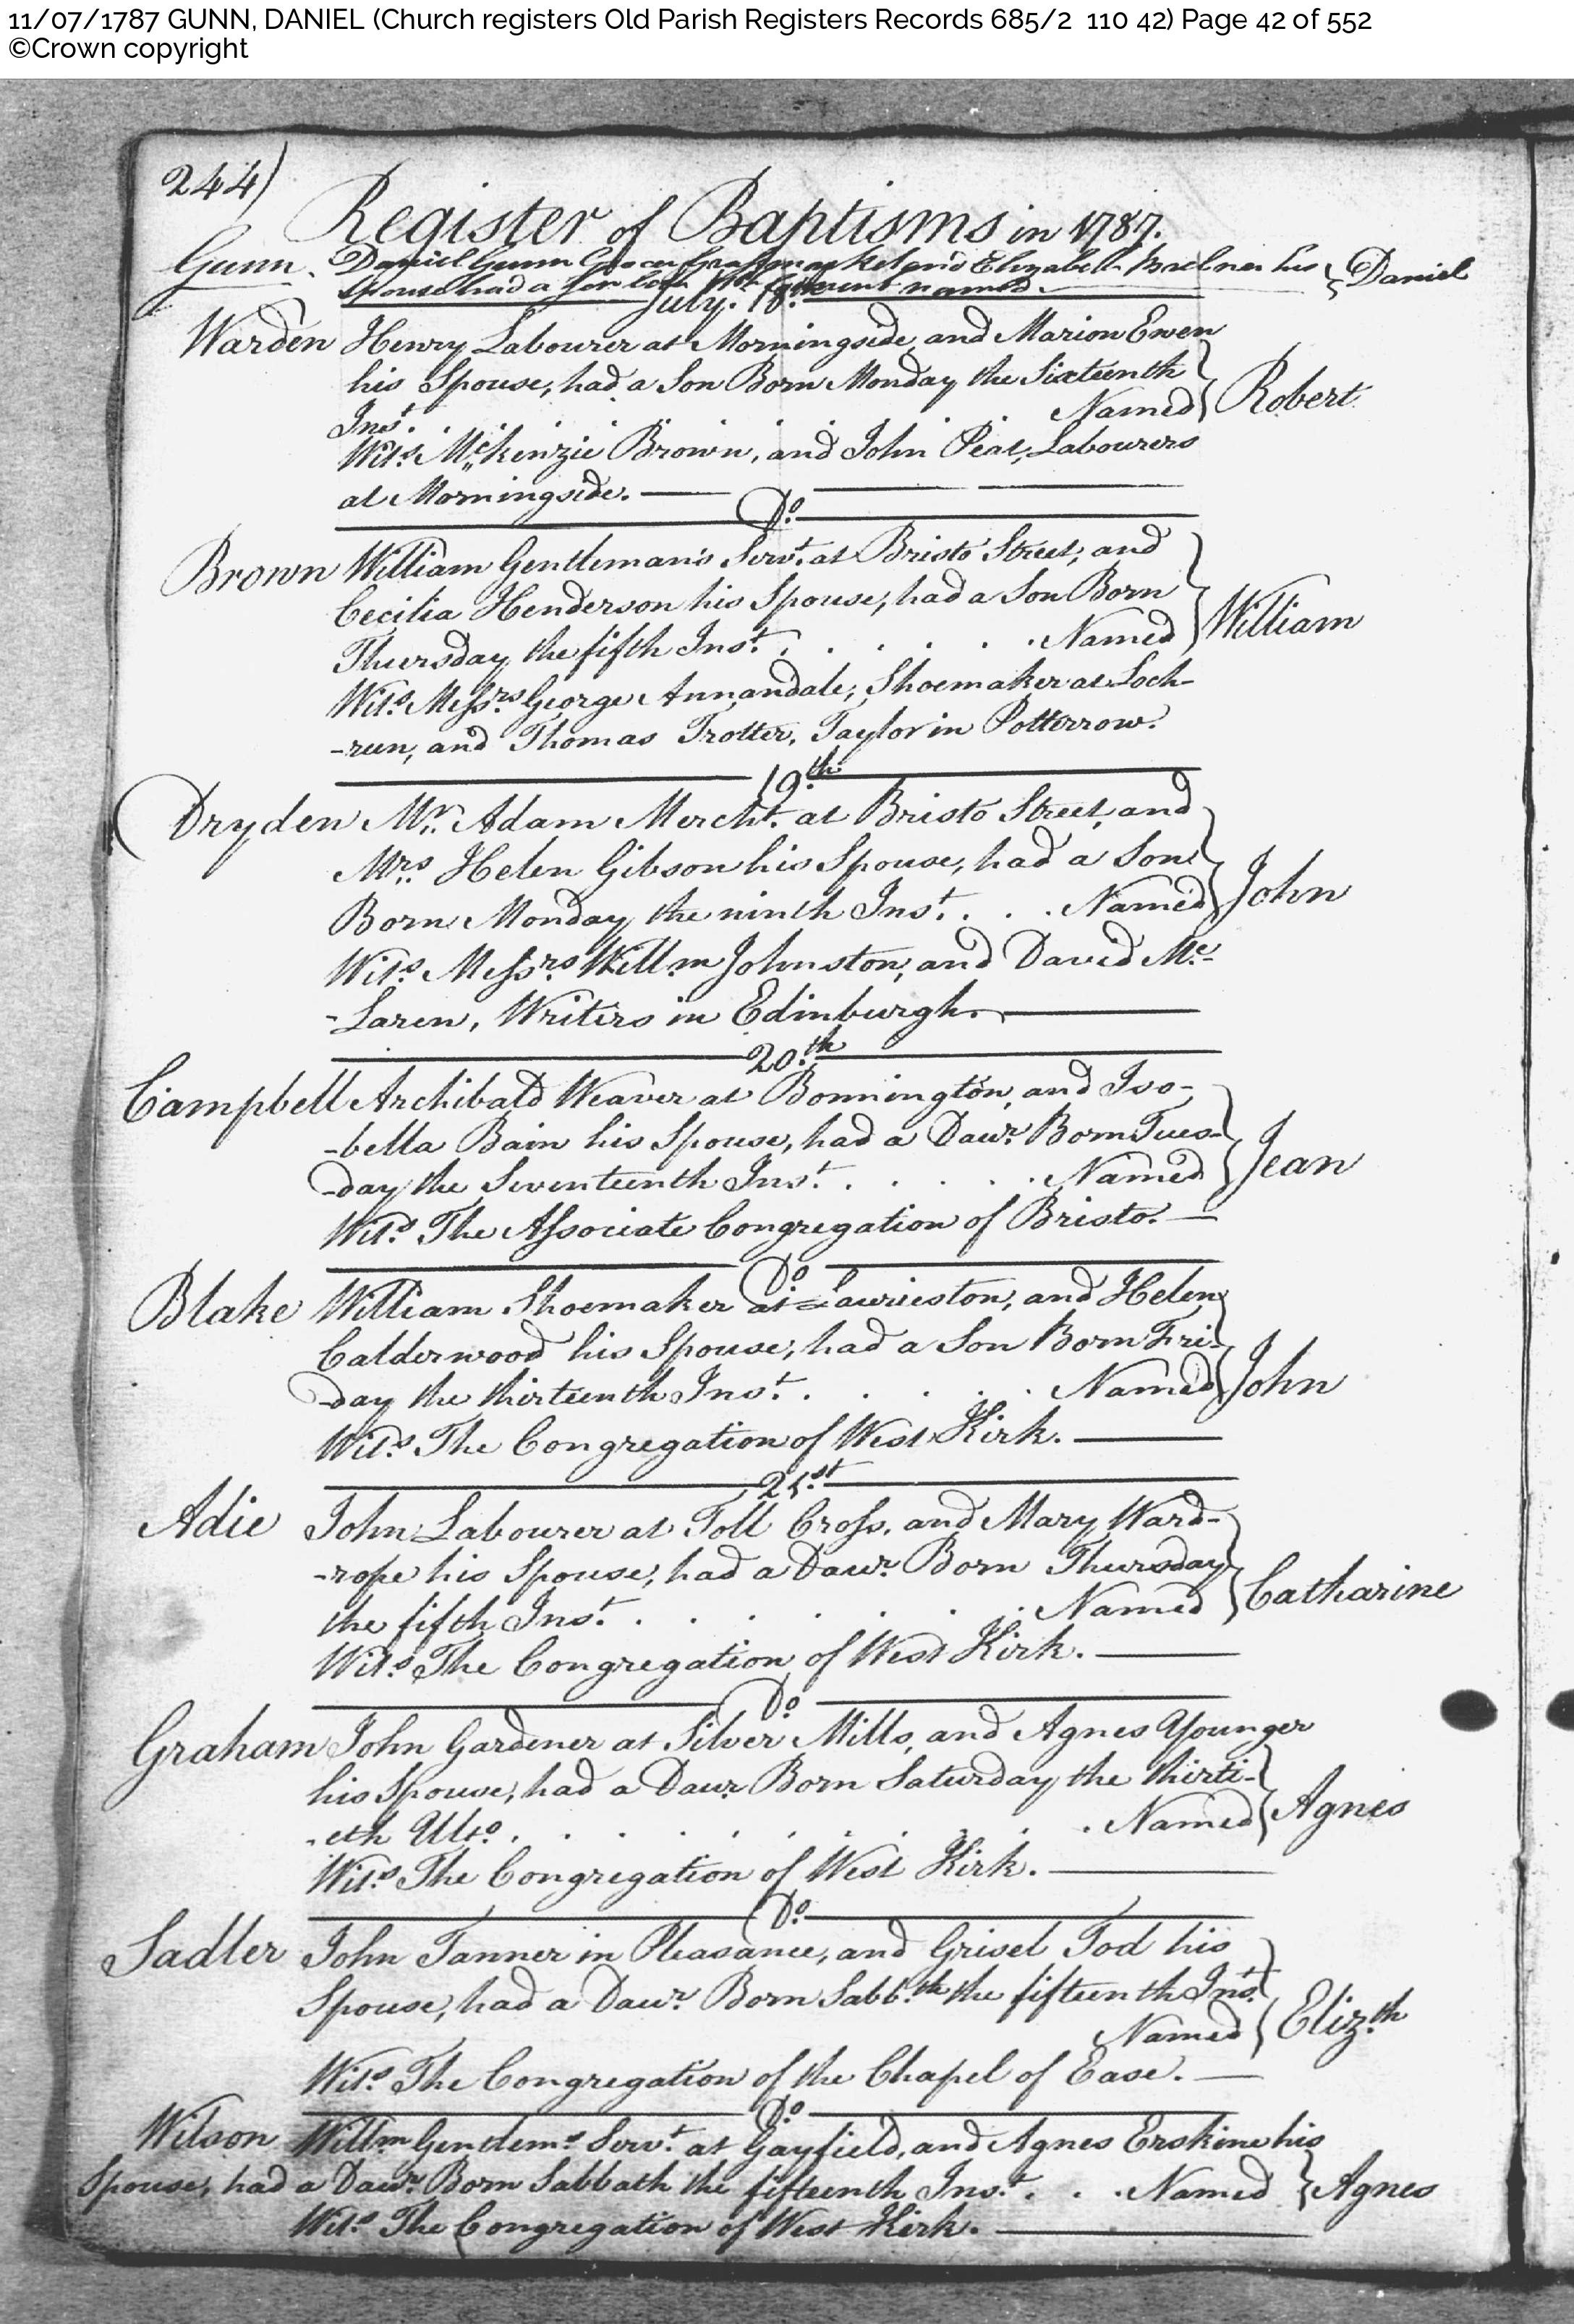 11/07/1787 GUNN, DANIEL (Church registers Old Parish Registers Records 685/2 110 42) Page 42 of 552
©Crown copyright
244)
Register of Baptisms in 1787.
Gunn. Daniel Gunn Grocer Grassmarket and Elizabeth his } Daniel
Spouse had a Son born 11th Current named
July. 18th
Warden Henry Labourer at Morningside, and Marion Ewen
his Spouse, had a Son Born Monday the Sixteenth
Inst. . . . . . . . Named } Robert
Wits. McKenzie Brown, and John Peat, Labourers
at Morningside.
Do.
Brown William Gentleman's Servt. at Bristo Street, and
Cecilia Henderson his Spouse, had a Son Born
Thursday the fifth Inst. . . . . . Named } William
Wits. Messrs George Annandale, Shoemaker at Loch-
-run, and Thomas Trotter, Taylor in Potterrow.
19th
Dryden Mr. Adam Mercht. at Bristo Street, and
Mrs. Helen Gibson his Spouse, had a Son
Born Monday the ninth Inst. . . . Named } John
Wits. Messrs Willm Johnston, and David Mc-
-Laren, Writers in Edinburgh.
20th
Campbell Archibald Weaver at Bonnington, and Iso-
-bella Bain his Spouse, had a Dawr. Born Tues-
-day the Seventeenth Inst. . . . . . Named } Jean
Wits. The Associate Congregation of Bristo.
Do
Blake William Shoemaker at Lauriestons, and Helen
Calderwood his Spouse, had a Son Born Fri-
-day the thirteenth Inst. . . . . Named } John
Wits. The Congregation of West Kirk.
21st
Adie John Labourer at Toll Cross, and Mary Ward-
-rope his Spouse, had a Dawr. Born Thursday
the fifth Inst. . . . . . . Named } Catharine
Wits. The Congregation of West Kirk.
Do.
Graham John Gardener at Silver Mills, and Agnes Younger
his Spouse, had a Dawr. Born Saturday the thirti-
-eth Ulto. . . . . . . . . . Named } Agnes
Wits. The Congregation of West Kirk.
Do.
Sadler John Tanner in Pleasance, and Grisel Tod his
Spouse, had a Dawr. Born Sabbth the fifteenth Inst.
Named } Elizth
Wits. The Congregation of the Chapel of Ease.
Do.
Wilson Willm Gentlems Servt. at Gayfield, and Agnes Erskine his
Spouse, had a Dawr. Born Sabbath the fifteenth Inst. . . . Named } Agnes
Wits. The Congregation of West Kirk.